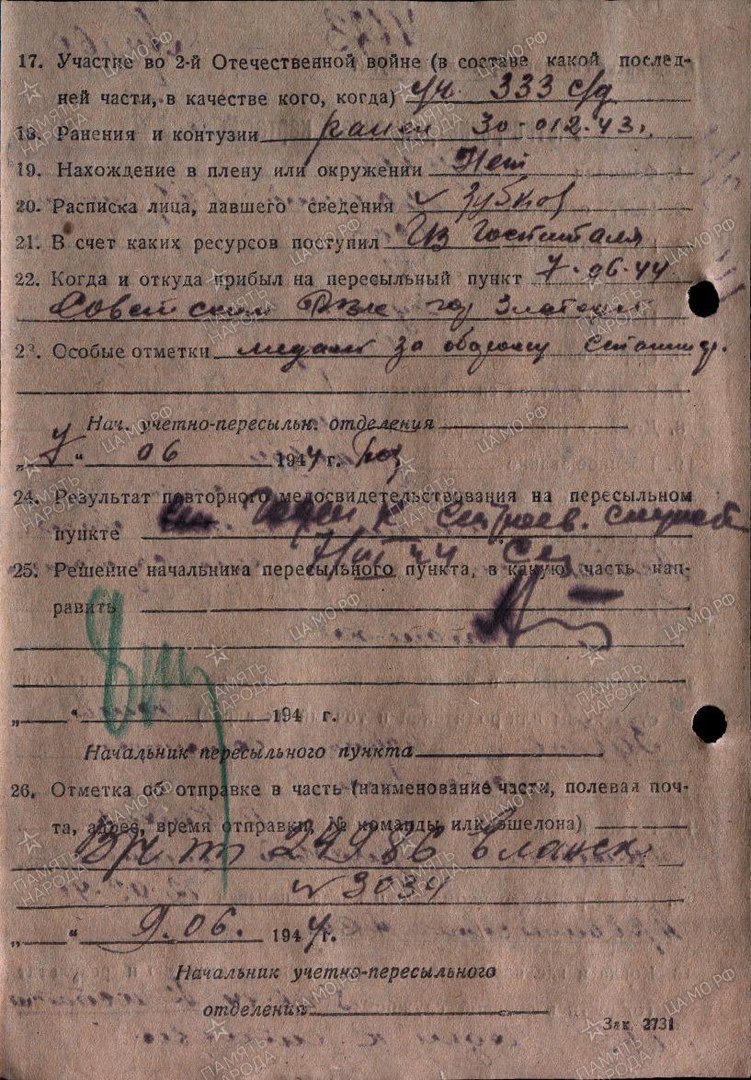 17. Участие во 2-й Отечественной войне (в составе какой послед-
ней части, в качестве кого, когда) уч. 333 с/д
18. Ранения и контузии ранен 30-012-43.
19. Нахождение в плену или окружении Нет
20. Расписка лица, давшего сведения Зубков
21. В счет каких ресурсов поступил Из Госпиталя
22. Когда и откуда прибыл на пересыльный пункт 7-06-44
Советским РВК гор
23. Особые отметки медаль за оборону Сталингр.
Нач. учетно-пересыльн. отделения
„ 7 “ 06 1944 г.
24. Результат повторного медосвидетельствования на пересыльном
Годен к строев. службе
пункте
25. Решение начальника пересыльного пункта, в какую часть нап-
равить
„ “ 194 г.
Начальник пересыльного пункта
26. Отметка об отправке в часть (наименование части, полевая поч-
та, адрес, время отправки, № команды или эшелона)
24986
3034
„ “ 9.06. 1944г.
Начальник учетно-пересыльного
отделения
Зак. 2731
ПАМЯТЬ НАРОДА
ЦАМО.РФ